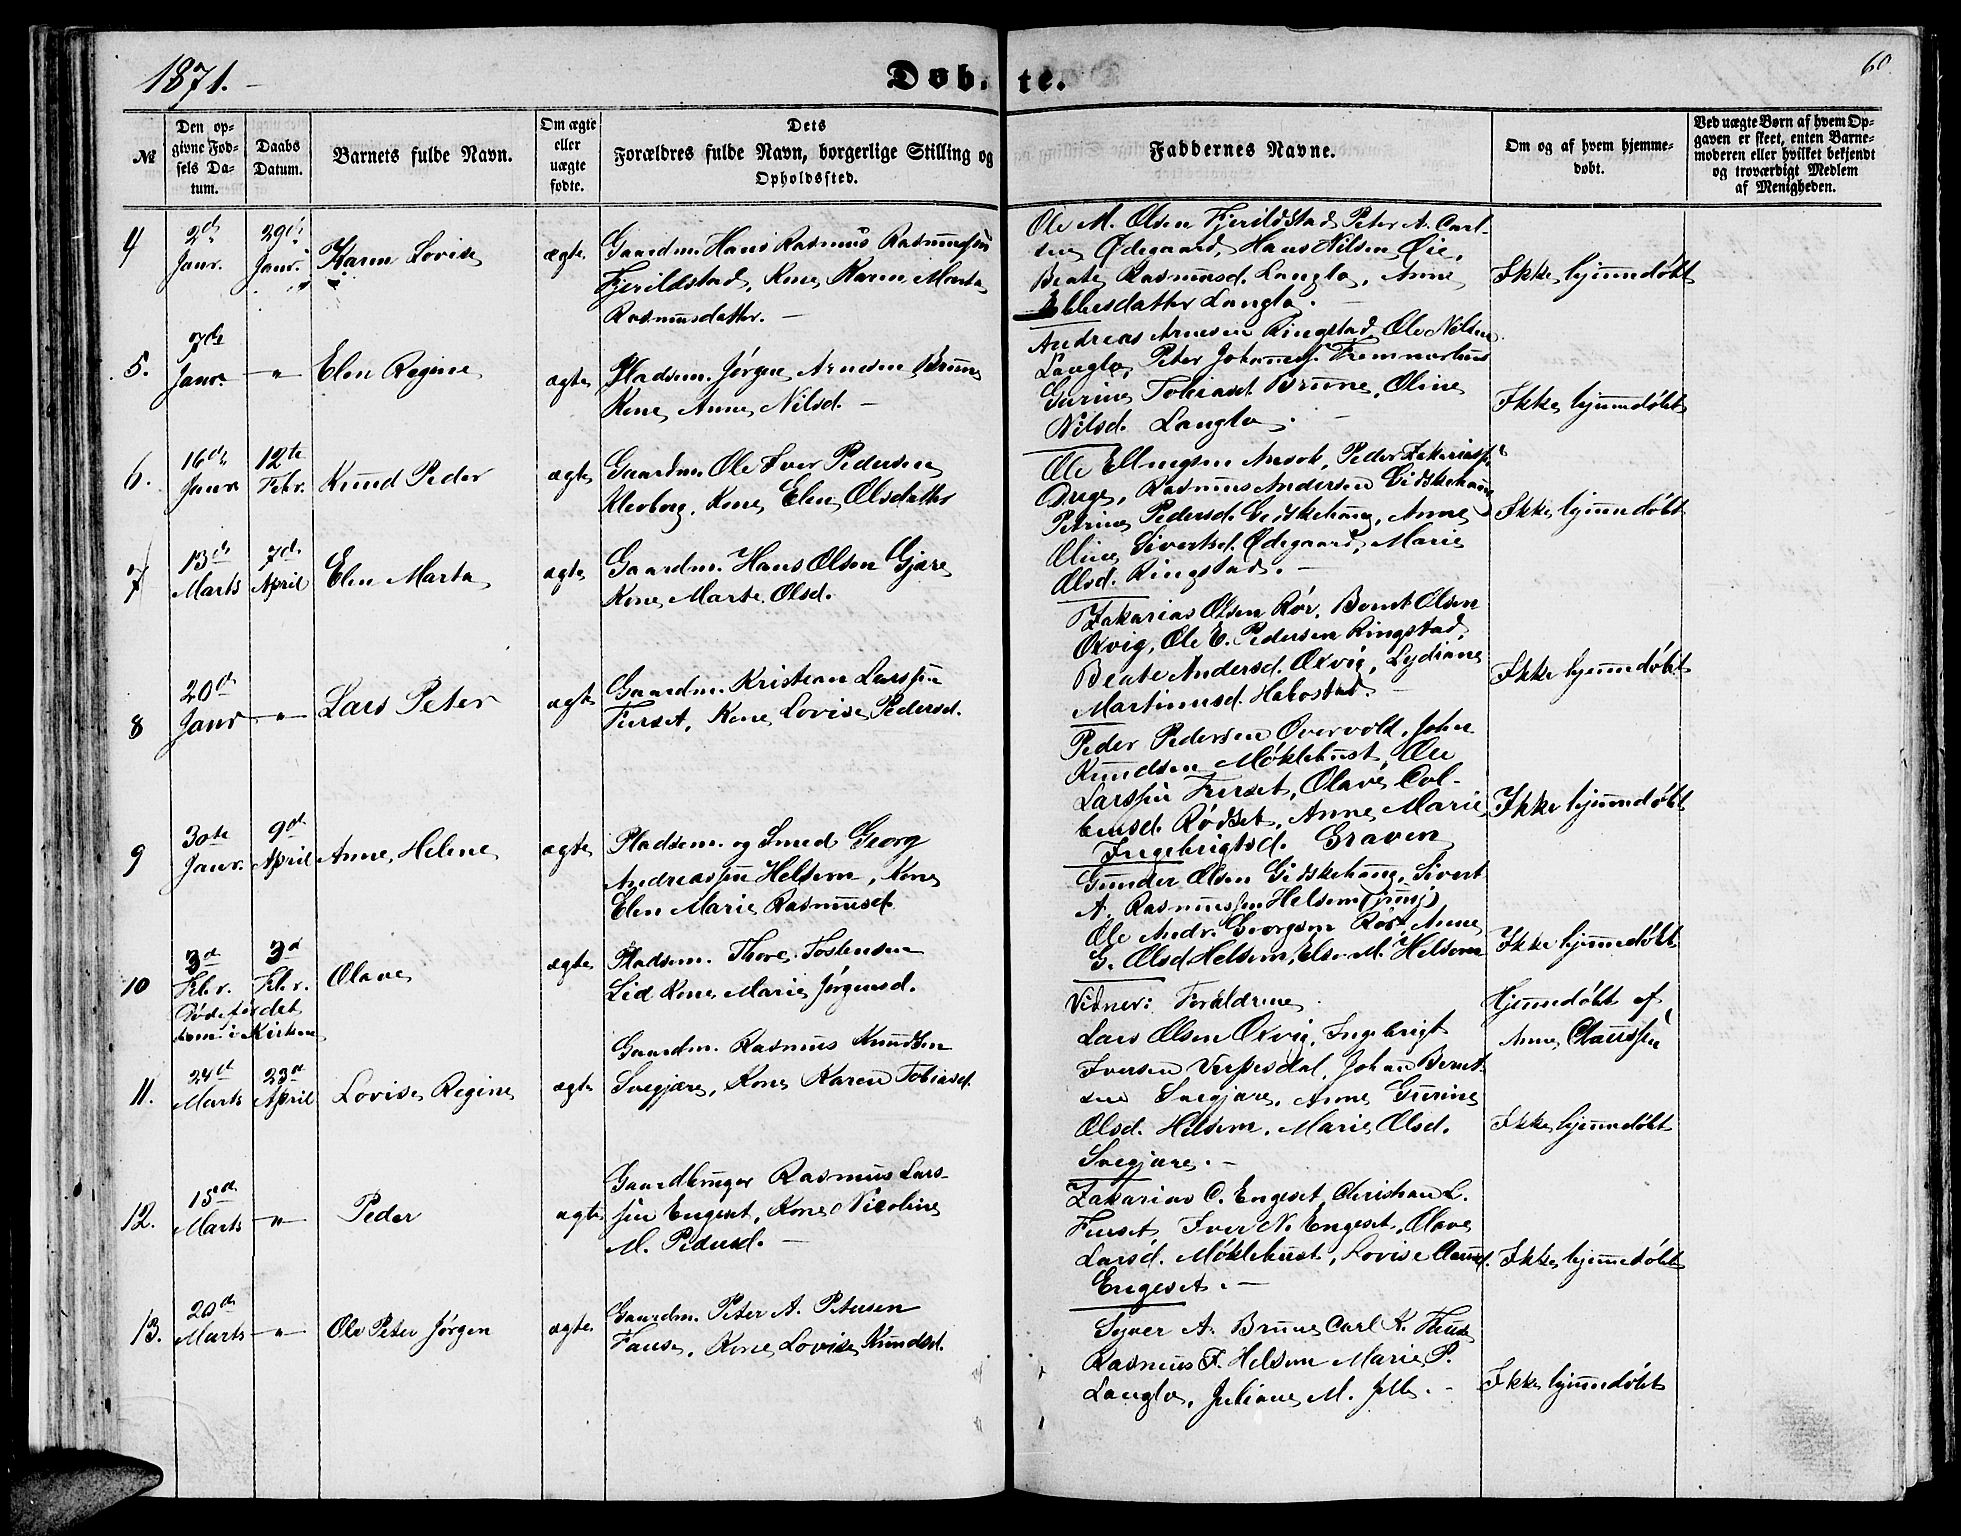 1871.
Døbte.
60.
№
Den op-
givne Fød-
sels Da-
tum.
Daabs
Datum.
Barnets fulde Navn.
Om ægte
eller
uægte
fødte.
Dets
Forældres fulde Navn, borgerlige Stilling og
Opholdssted.
Faddernes Navne.
Om og af hvem hjemme-
døbt.
Ved uægte Børn af hvem Op-
gaven er skeet, enten Barne-
moderen eller hvilket bekjendt
og troværdigt Medlem
af Menigheden.
4
2den
Janr.
29de
Janr.
Karen Lovise
ægte
Gaardm. Hans Rasmus Rasmussen
Fjerildstad, Kone Karen Marta
Rasmusdatter. —
Ole M. Olsen Fjerildstad, Peter A. Carl-
sen Ødegaard, Hans Nilsen Øie,
Beate Rasmusd. Langlo, Anne
Ebbesdatter Langlo. —
Ikke hjemmedøbt
5.
7de
Janr.
—"—
Elen Regine
ægte
Pladsm. Jørgen Arnesen Brune
Kone Anne Nilsd. —
Andreas Arnesen Ringstad, Ole Nilsen
Langlo, Peter Johannes. Fremmerhus
Gurine Tobiasd. Brune, Oline
Nilsd. Langlo.
Ikke hjemmedøbt
6.
16de
Janr
12te
Febr.
Knud Peder
ægte
Gaardm. Ole Iver Pedersen
Kleoberg, Kone Elen Olsdatter
Ole Ellingsen Amsok, Peder Zakariass.
Drege, Rasmus Andersen Gidskehaug
Petrine Pedersd. Gidskehaug, Anne
Oline Sivertsd. Ødegaard, Marie
Olsd. Ringstad. —
Ikke hjemmedøbt
7
13de
Marts
7de
April
Elen Marta
ægte
Gaardm. Hans Olsen Gjære
Kone Marte Olsd.
Zakarias Olsen Rør, Bernt Olsen
Oxvig, Ole E. Pedersen Ringstad,
Beate Andersd. Oxvig, Lydiane
Martinusd. Habostad. —
Ikke hjemmedøbt
8
20de
Janr
—"—
Lars Peter
ægte
Gaardm. Kristian Larssen
Furset, Kone Lovise Pedersd.
Peder Pedersen Overvold, John
Knudsen Møklebust, Ole
Larssen Furset, Olave Col-
bensd. Rødset, Anne Marie
Ingebrigtsd. Graven
Ikke hjemmedøbt
9
30te
Janr.
9de
April
Anne Helene
ægte
Pladsem. og Smed Georg
Andreassen Helsem, Kone
Elen Marie Rasmusd.
Gunder Olsen Gidskehaug, Sivert
A. Rasmussen Helsem (jung)
Ole Andr. Georgsen Rør, Anne
G. Olsd. Helsem, Else M. Helsem
Ikke hjemmedøbt
10
3d
Febr.
3d
Febr.
Døde før det
kom i Kirken
Olave
ægte
Pladsem. Thore Tostensen
Lid Kone Marie Jørgensd.
Vidner: Forældrene
Hjemmedøbt af
Anne Claussen
11.
24de
Marts
23d
April
Lovise Regine
ægte
Gaardm. Rasmus Knudsen
Svegjære, Kone Karen Tobiasd.
Lars Olsen Oxvig, Ingebrigt
Iversen Verpesdal, Johan Bernt-
sen Svegjære, Anne Gurine
Olsd. Helsem, Marie Olsd.
Svegjære. —
Ikke hjemmedøbt
12.
15de
Marts
—"—
Peder
ægte
Gaardbruger Rasmus Lars-
sen Engeset, Kone Nicoline
M. Pedersd. —
Zakarias C. Engeset, Christian L.
Furset, Iver N. Engeset, Olave
Larsd. Møklebust, Lovise Clausd.
Engeset. —
Ikke hjemmedøbt
13.
20de
Marts
—"—
Ole Peter Jørgen
ægte
Gaardm. Peter A. Petersen
Fause, Kone Lovise Knudsd.
Syver A. Brune, Carl K.
Rasmus F. Helsem Marie P.
Langlo, Juliane M.
Ikke hjemmedøbt